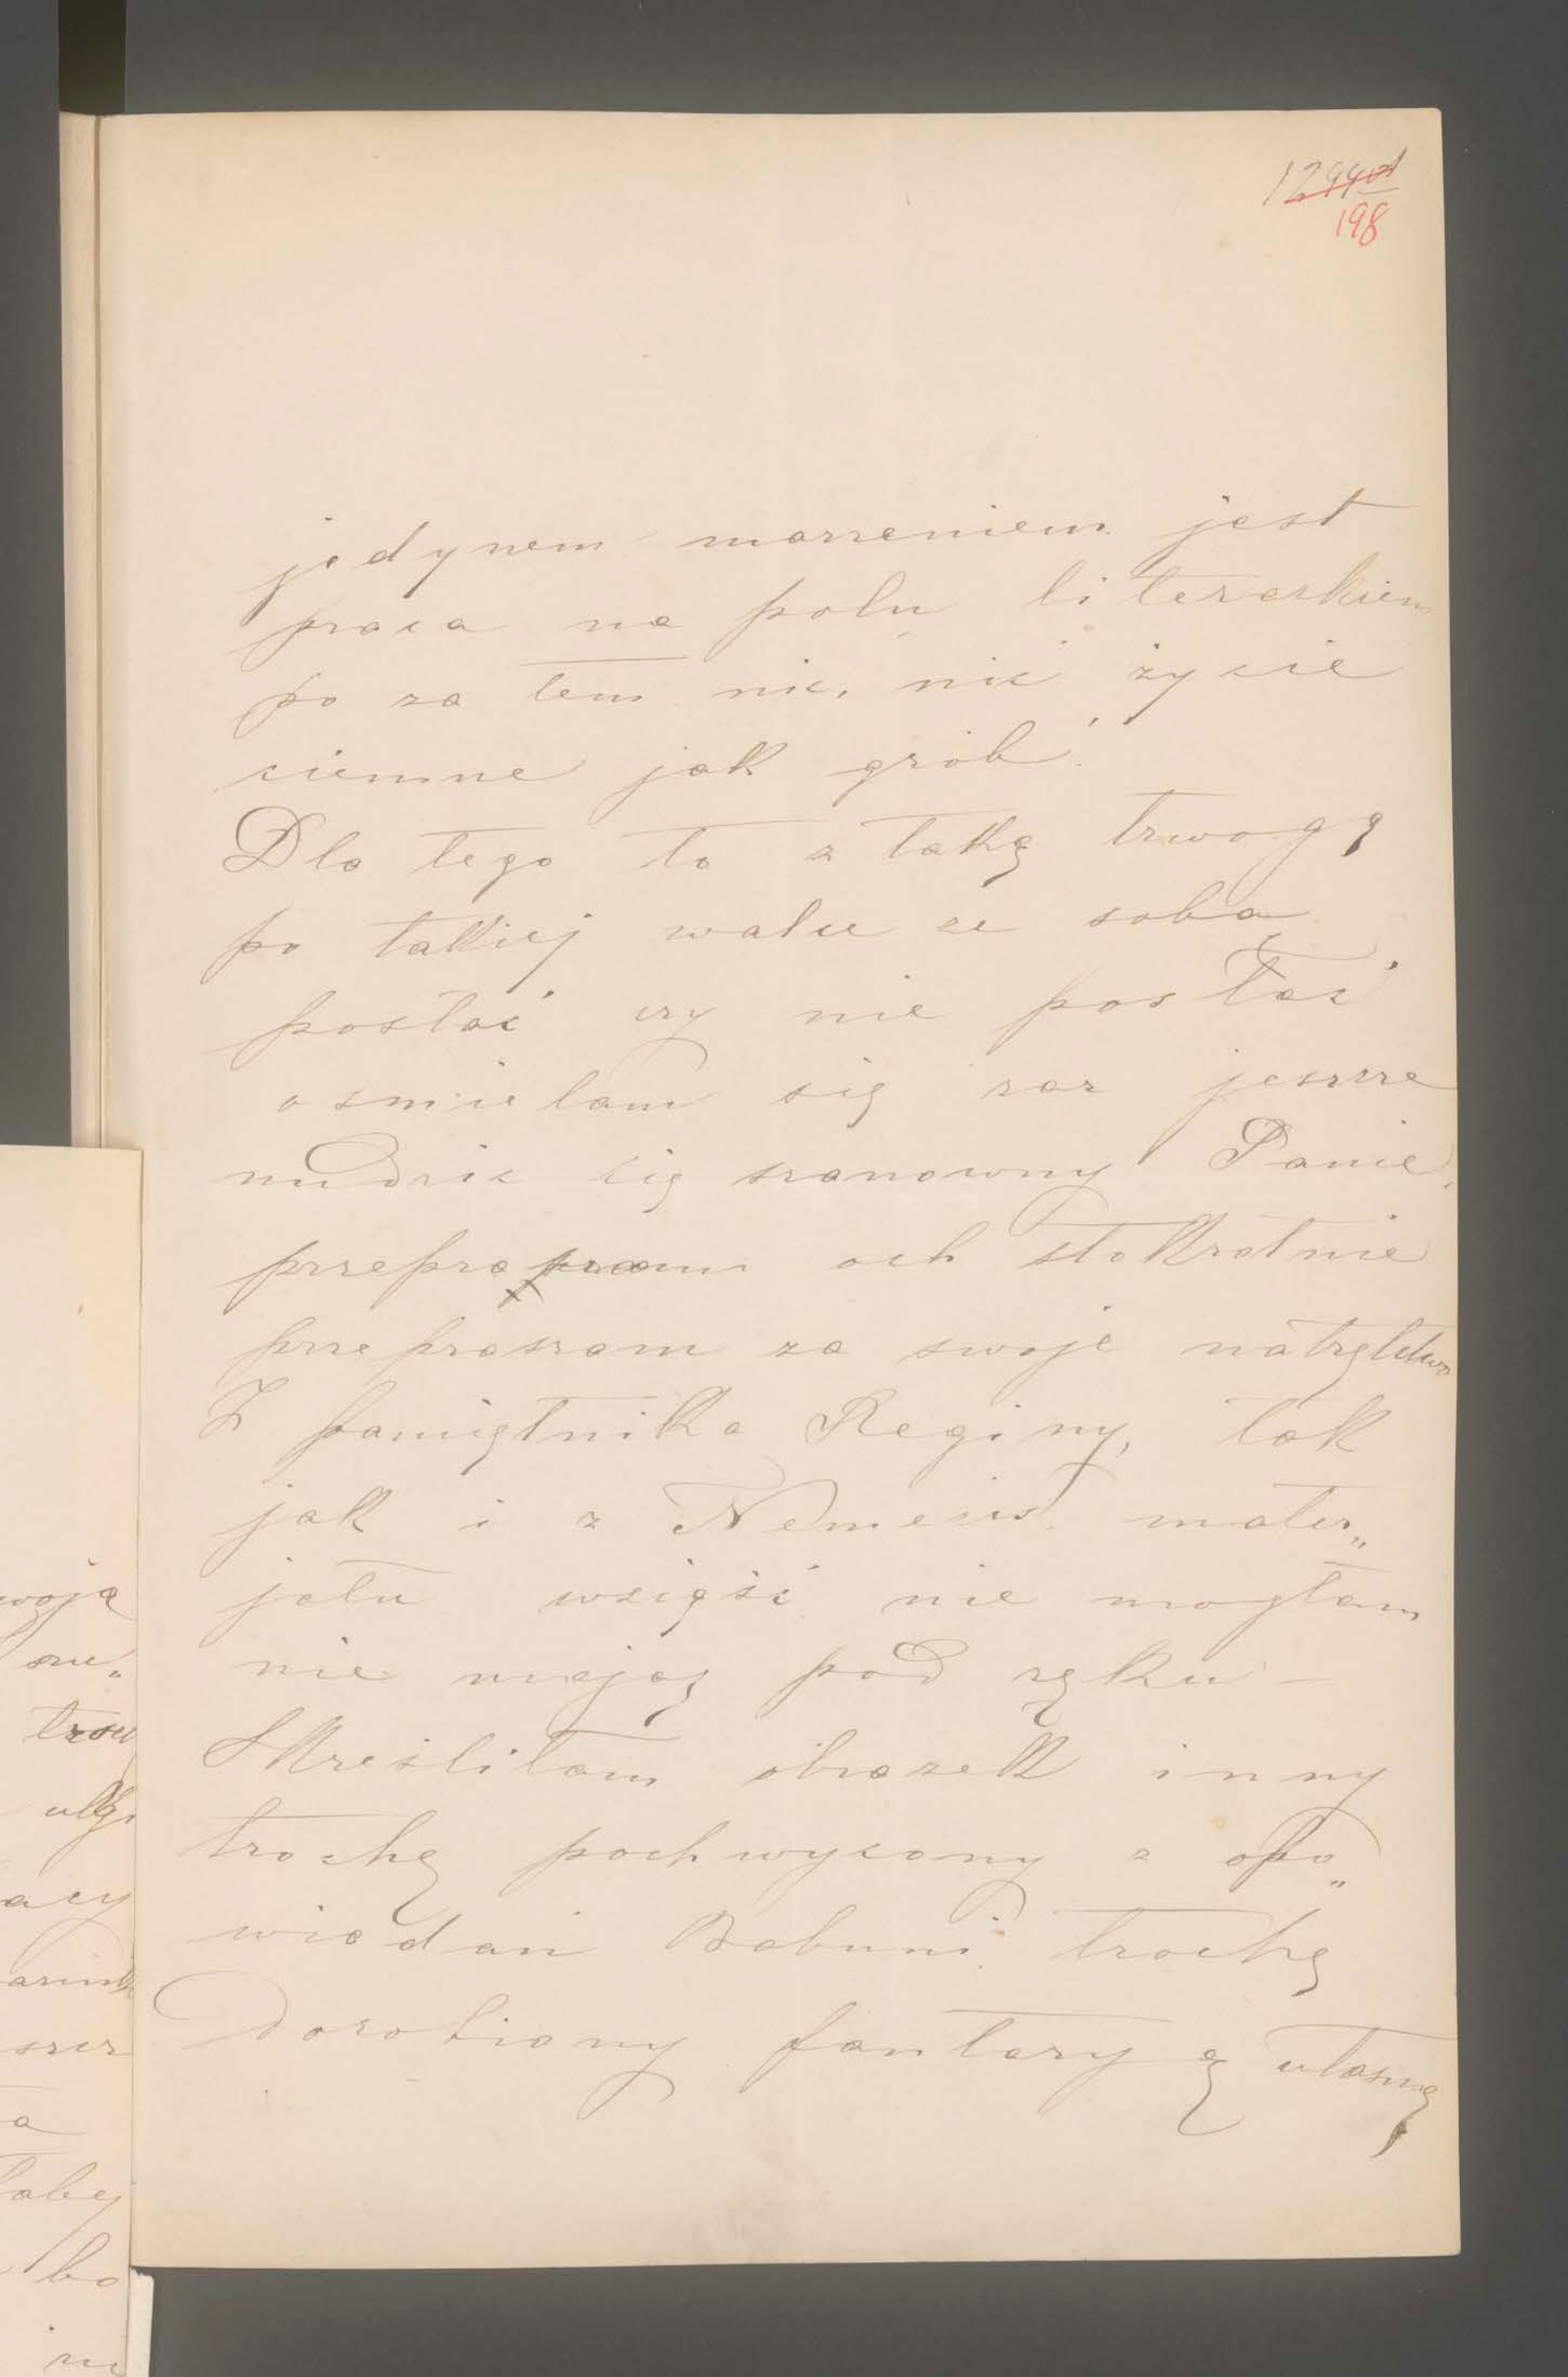 198
jedynem marzeniem jest
praca na polu literackiem
po za tem nic, nic życie
ciemne jak grób!
Dla tego to z taką trwogą
po takiej walce ze sobą
posłać czy nie posłać
osmielam się raz jeszcze
nudzic Cię szanowny Panie,
przepra am och stokrotnie
przepraszam za swoje natręctwo
Z pamiętnika Reginy, tak
jak i z mater„
jału wziąść nie mogłam
nie mając pod ręku –
Skreśliłam obrazek inny
trochę pochwycony z opo„
wiadań Babuni trochę
dorobiony fantazyą własną,
woją
acy
bo